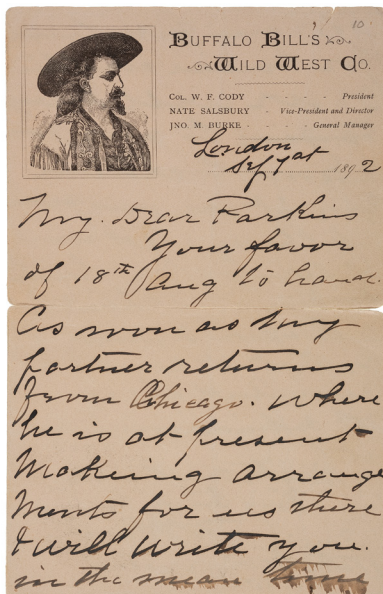 10
BUFFALO BILL'S
WILD WEST CO.
COL. W. F. CODY - - - - President
NATE SALSBURY - - Vice-President and Director
JNO. M. BURKE - - - - General Manager
London
Sep 1st 1892
My Dear Parkins
Your favor
of 18th Aug to hand.
As soon as my
partner returns
from Chicago. Where
he is at present
Makeing arrange
ments for us there
I will write you.
in the mean time